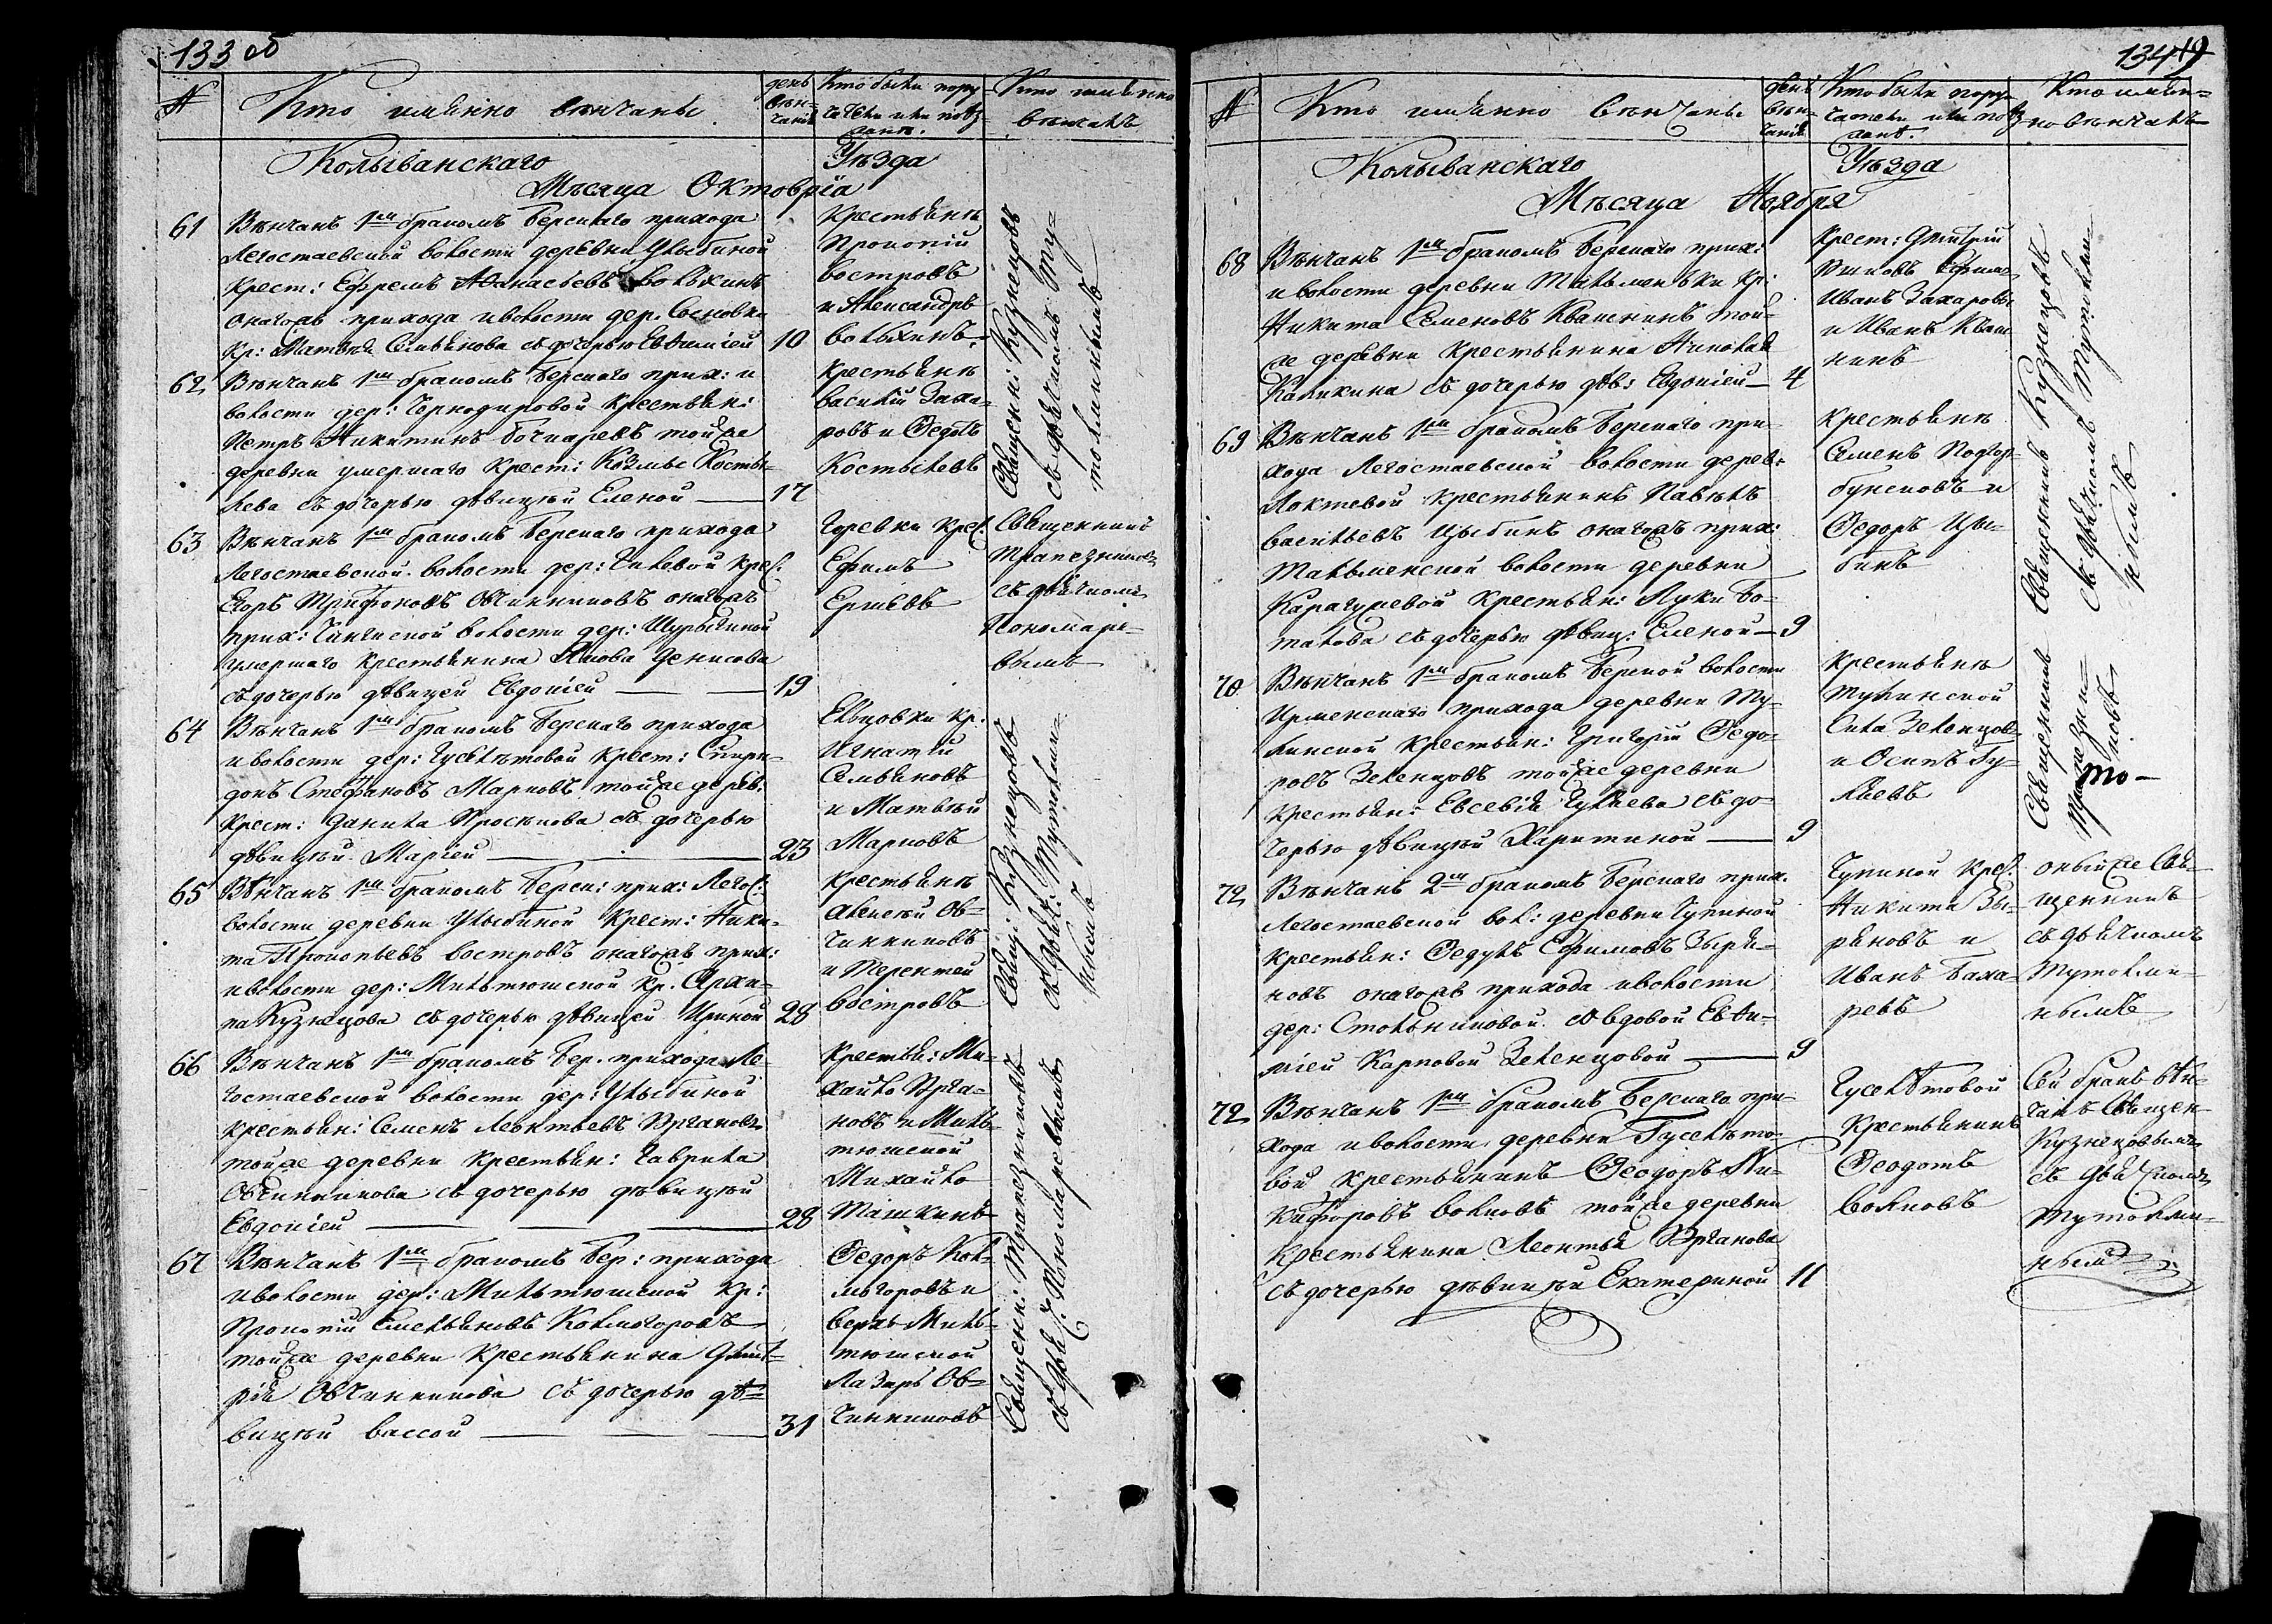 133 об
№
Кто имянно вѣнчаны
день вѣн-
чанія
Кто были пору
чатели или поѣз-
жане.
Кто имянно
вѣнчалъ
Колыванскаго Уѣзда
Мѣсяца Октоврія
61
Вѣнчанъ 1мъ бракомъ Берскаго прихода
Легостаевской волости деревни Улыбиной
Крест: Ефремъ Аѳанасьевъ Волыхинъ
онагожъ прихода и волости дер. Сосновки
Кр: Матвѣя Емельянова съ дочерью Евѳиміей
10
Крестьяне
Прокопій
Востровъ
и Александръ
Волыхинъ.
Священ: Кузнецовъ
съ дьячкомъ Ту-
толминымъ
62
Вѣнчанъ 1мъ бракомъ Берскаго прих: и
волости дер: Чернодыровой крестьян:
Петръ Никитинъ Бочкаревъ той же
деревни умершаго Крест: Козьмы Косты-
лева съ дочерью дѣвицѣй Еленой
17
Крестьяне
Василій Заха-
ровъ и Ѳедотъ
Костылевъ
63
Вѣнчанъ 1мъ бракомъ Берскаго прихода
Легостаевской волости дер: Гилевой крес.
Егоръ Трифоновъ Овчинниковъ онагожъ
прих: Чингиской волости дер: Шурыгиной
умершаго крестьянина Якова Денисова
съ дочерью дѣвицей Евдокіей
19
Горевки крес.
Ефимъ
Ершевъ
Священникъ
Трапезниковъ
съ дьячкомъ
Пономаре-
вымъ
64
Вѣнчанъ 1мъ бракомъ Берскаго прихода
и волости дер: Гуселѣтовой крест: Спири-
донъ Стефановъ Марковъ той же дерев:
Крест: Данила Проскокова съ дочерью
дѣвицѣй Маріей
23
Ельцовки Кр.
Игнатій
Емельяновъ
и Матвѣй
Марковъ
65
Вѣнчанъ 1мъ бракомъ Берск: прих: Легос:
волости деревни Улыбиной Крест: Ники-
та Прокопьевъ Востровъ онагожъ прих:
и волости дер: Мильтюшской Кр. Архи-
па Кузнецова съ дочерью дѣвицей Ириной
28
Крестьяне
Алексѣй Ов-
чинниковъ
и Терентей
Востровъ
Свящ: Кузнецовъ
съ дьяч: Тутолми-
нымъ
66
Вѣнчанъ 1мъ бракомъ Бер. прихода Ле-
гостаевской волости дер: Улыбиной
крестьян: Семенъ Леонтьевъ Ергановъ
той же деревни Крестьян: Гаврила
Овчинникова съ дочерью дѣвицѣй
Евдокіей
28
Крестьян: Ми-
хайло Ерга-
новъ и Миль-
тюшской
Михайло
Ташкинъ
67
Вѣнчанъ 1мъ бракомъ Бер: прихода
и волости дер: Мильтюшской Кр:
Прокопій Емельяновъ Колмогоровъ
той же деревни Крестьянина Дмит-
рія Овчинникова съ дочерью дѣ-
вицѣй Вассой
31
Ѳедоръ Кол-
могоровъ и
Верхъ Миль-
тюшской
Лазарь Ов-
чинниковъ
Священ: Трапезниковъ
съ дьяч: Пономаревымъ
134
№
Кто имянно вѣнчаны
день
вѣн-
чанія
Кто были пору-
чатели или поѣз-
жане.
Кто имян-
но вѣнчалъ
Колыванскаго Уѣзда
Мѣсяца Ноября
68
Вѣнчанъ 1мъ бракомъ Берскаго прих:
и волости деревни Тальменьки кр:
Никита Семеновъ Квашнинъ той-
же деревни Крестьянина Николая
Каликина съ дочерью дѣв: Евдокіей
4
Крест: Дмитрій
Иванъ Захаровъ
и Иванъ Кваш
нинъ
Священникъ Кузнецовъ
съ дьячкомъ Тутолми-
нымъ
69
Вѣнчанъ 1мъ бракомъ Берскаго при-
хода Легостаевской волости дерев:
Локтевой крестьянинъ Павелъ
Васильевъ Цыбинъ онагожъ прих:
Тальменской волости деревни
Карагужевой Крестьян: Луки По-
тапова съ дочерью дѣвиц: Еленой
9
Крестьяне
Семенъ Подгор-
бунсковъ и
Ѳедоръ Цы-
бинъ
70
Вѣнчанъ 1мъ бракомъ Берской волости
Ирменскаго прихода деревни Ту-
линской Крестьян: Григорій Ѳедо-
ровъ Зеленцовъ той же деревни
Крестьян: Евсевія Гуляева съ до-
черью дѣвицѣй Харитиной
9
Крестьяне
Тулинской
Сила Зеленцовъ
и Осипъ Гу-
ляевъ
Священникъ
Трапезни-
ковъ
72
Вѣнчанъ 2мъ бракомъ Берскаго прих.
Легостаевской вол: деревни Чупиной
крестьян: Ѳедулъ Ефимовъ Зыря-
новъ онагожъ прихода и волости
дер: Стольниковой съ вдовой Евѳи-
міей Карповой Зеленцовой
9
Чупиной Крес.
Никита Зы-
ряновъ и
Иванъ Баха-
ревъ
оный же Свя-
щенникъ
съ дьячкомъ
Тутолми-
нымъ
72
Вѣнчанъ 1мъ бракомъ Берскаго при-
хода и волости деревни Гуселѣто-
вой крестьянинъ Ѳеодоръ Ни-
кифоровъ Волковъ той же деревни
Крестьянина Леонтья Ерганова
съ дочерью дѣвицѣй Екатериной
11
Гуселѣтовой
Крестьянинъ
Ѳеодотъ
Волковъ
Сей бракъ вѣн-
чанъ Священ-
Кузнецовымъ
съ дьячкомъ
Тутолми-
нымъ